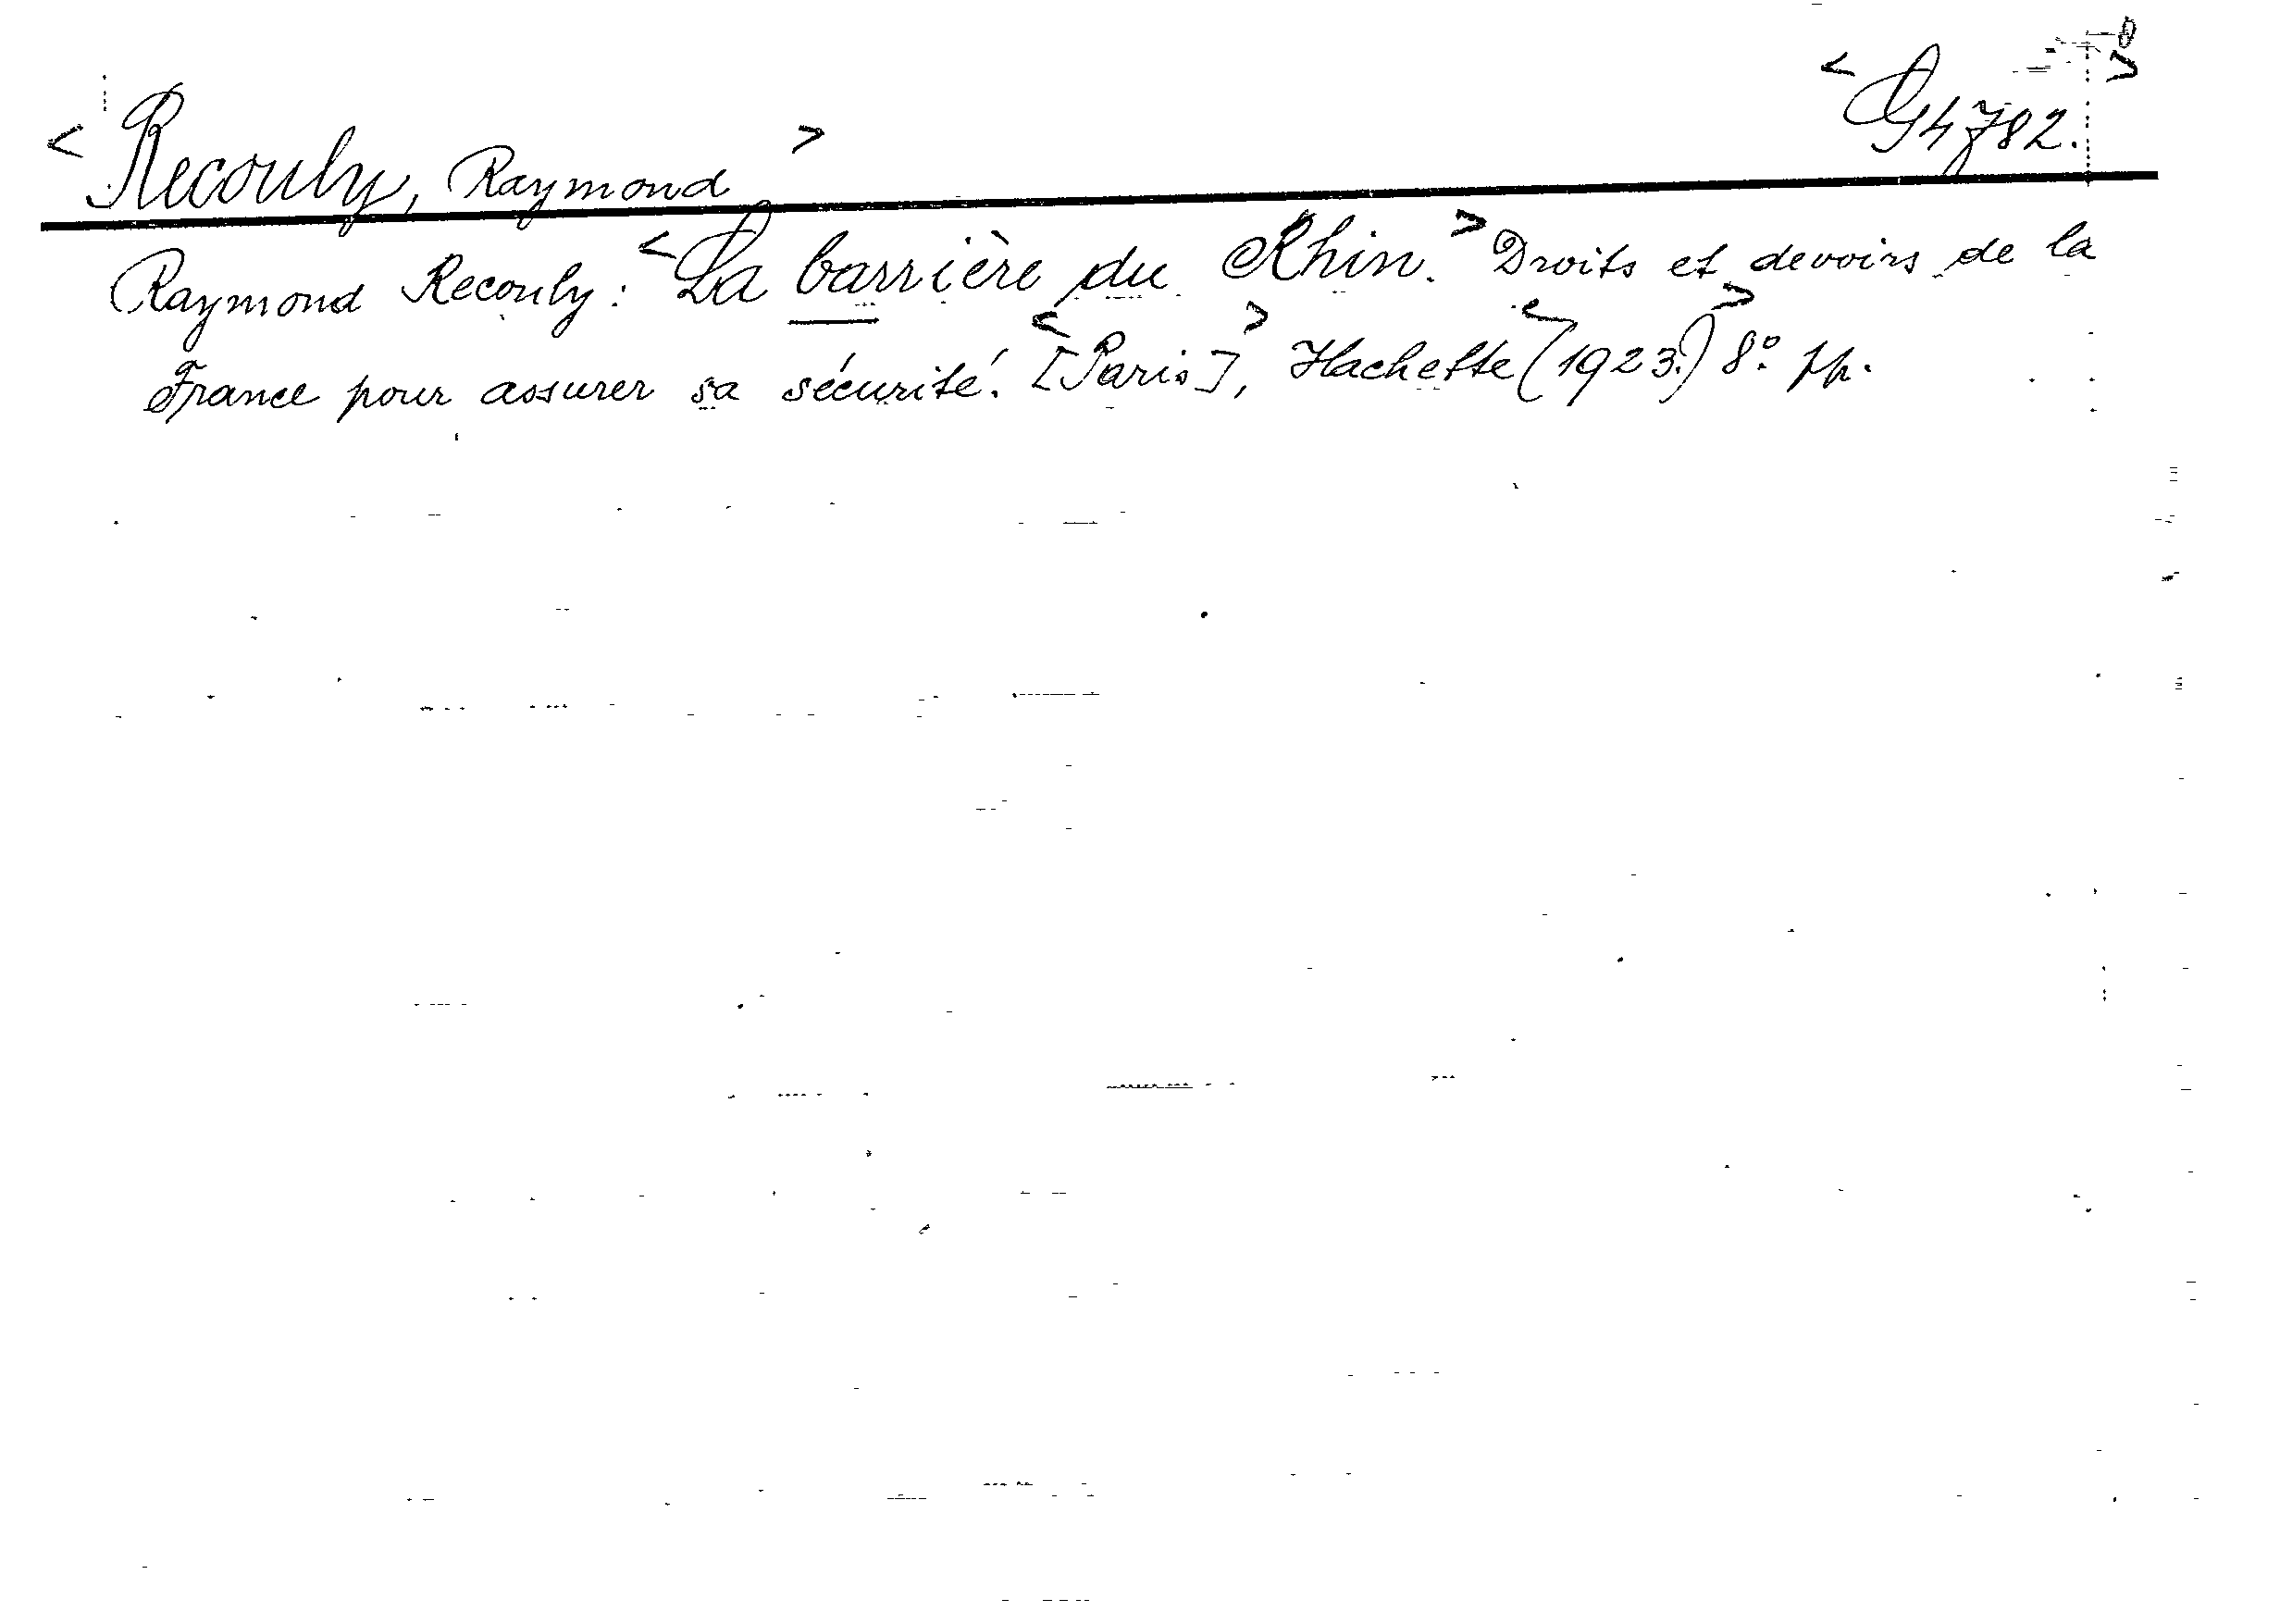 <Recouly, Raymond>
<G4782.>
Raymond Recouly: <La barrière du Rhin.> Droits et devoirs de la
France pour assurer sa sécurité. <[Paris]>, Hachette <(1923.)> 8°. pp.